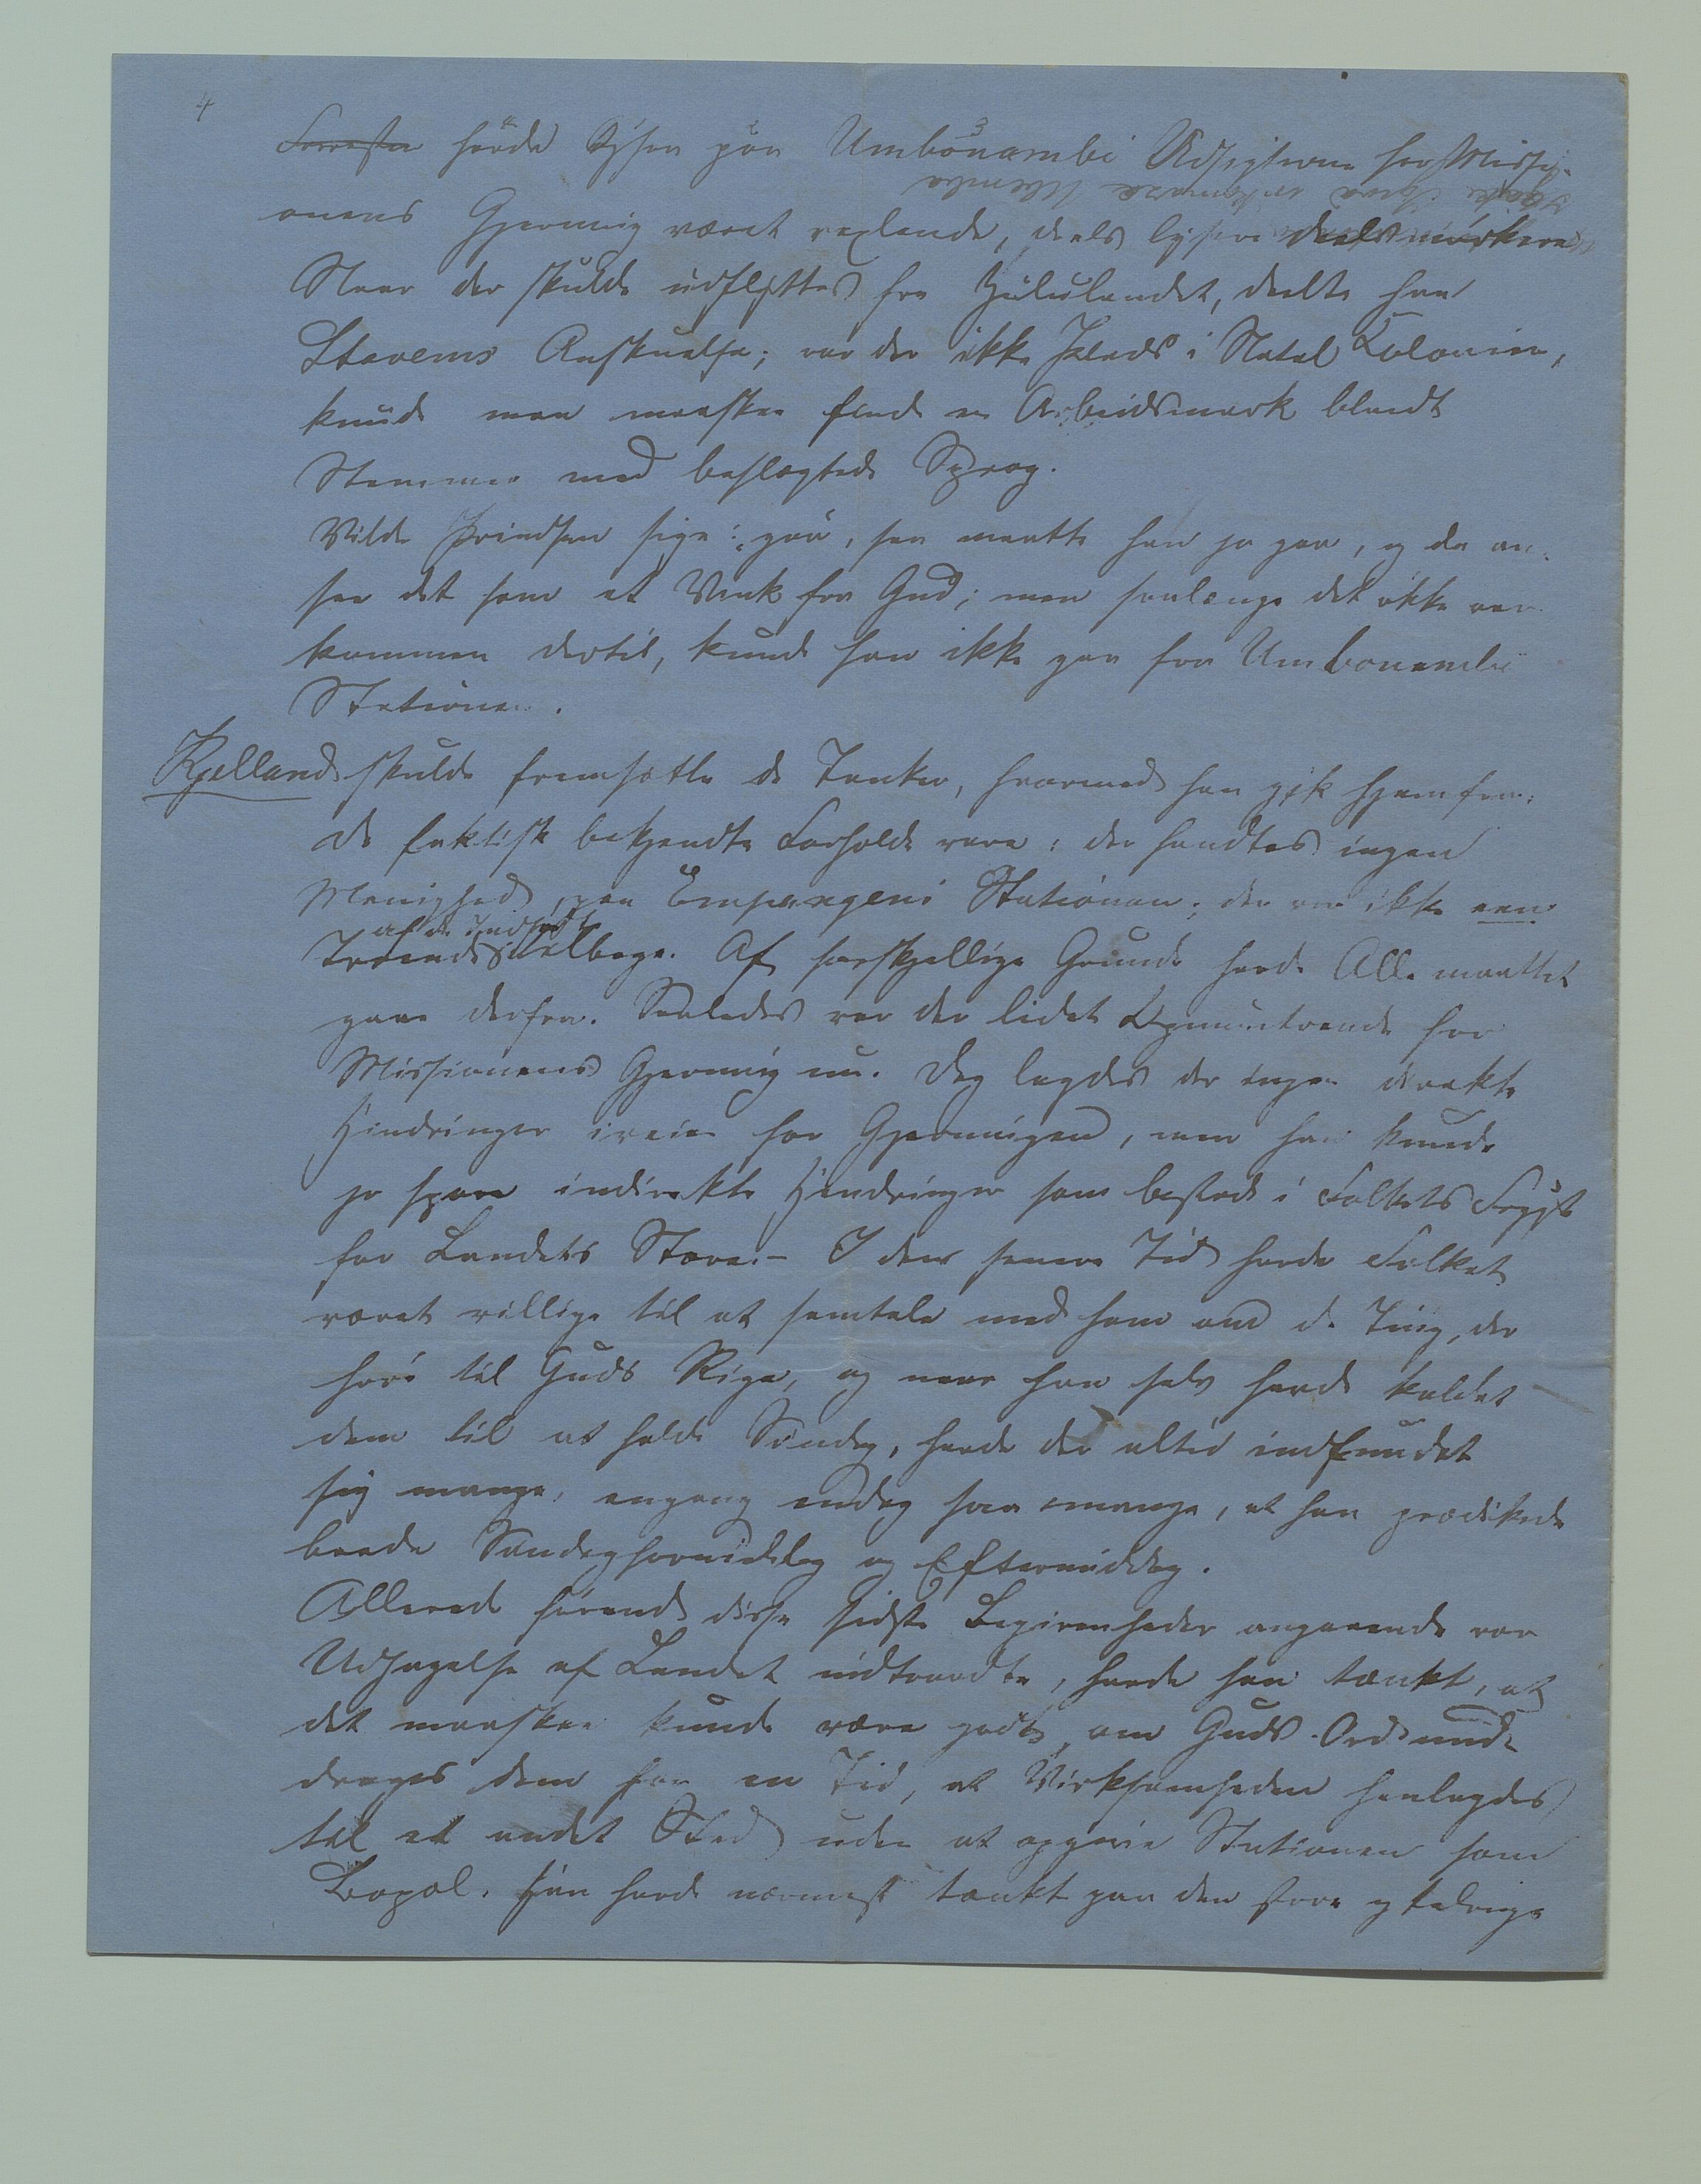 4
Forresten havde Synen paa Umbonambi Udsigterne for Missi-
onens Gjerning været vexlende, deels lysere deels mørkere
Naar der skulde udflyttes fra Zululandet, deelte han
Stavems Anskuelse; var der ikke Plads i Natal Kolonien,
kunde man maaskee finde en Arbeidsmark blandt
Stammer med beslægtede Sprog.
Vilde Prindsen sige: gaa, saa maatte han jo gaa, og da an-
see det som et Vink fra Gud; men saalænge det ikke var
kommen dertil, kunde han ikke gaa fra Umbonambi
Stationen.
Kjelland skulde fremsætte de Tanker, hvormed han gik hjemfra.
De faktisk bekjendte Forholde vare: der fandtes ingen
Menighed paa Empangeni Stationen; der var ikke een
af de Indfødte
Troende tilbage. Af forskjellige Grunde havde Alle maattet
gaae derfra. Saaledes var der lidet Opmuntrende for
Missionens Gjerning nu. Dog lagdes der ingen direkte
Hindringer iveien for Gjerningen, men han kunde
jo spore indirekte Hindringer som bestod i Folkets Frygt
for Landets Store. – I den senere Tid havde Folket
været villige til at samtale med ham om de Ting, der
høre til Guds Rige, og naar han selv havde kaldet
dem til at holde Søndag, havde der altid indfundet
sig mange, engang endog saa mange, at han prædikede
baade Søndagformiddag og Eftermiddag.
Allerede førend disse sidste Begivenheder angaaende vor
Udjagelse af Landet indtraadte, havde han tænkt, at
det maaskee kunde være godt, om Guds Ord und-
droges dem for en Tid, at Virksomheden henlagdes
til et andet Sted uden at opgive Stationen som
Bopæl. Han havde nærmest tænkt paa den store og talrige